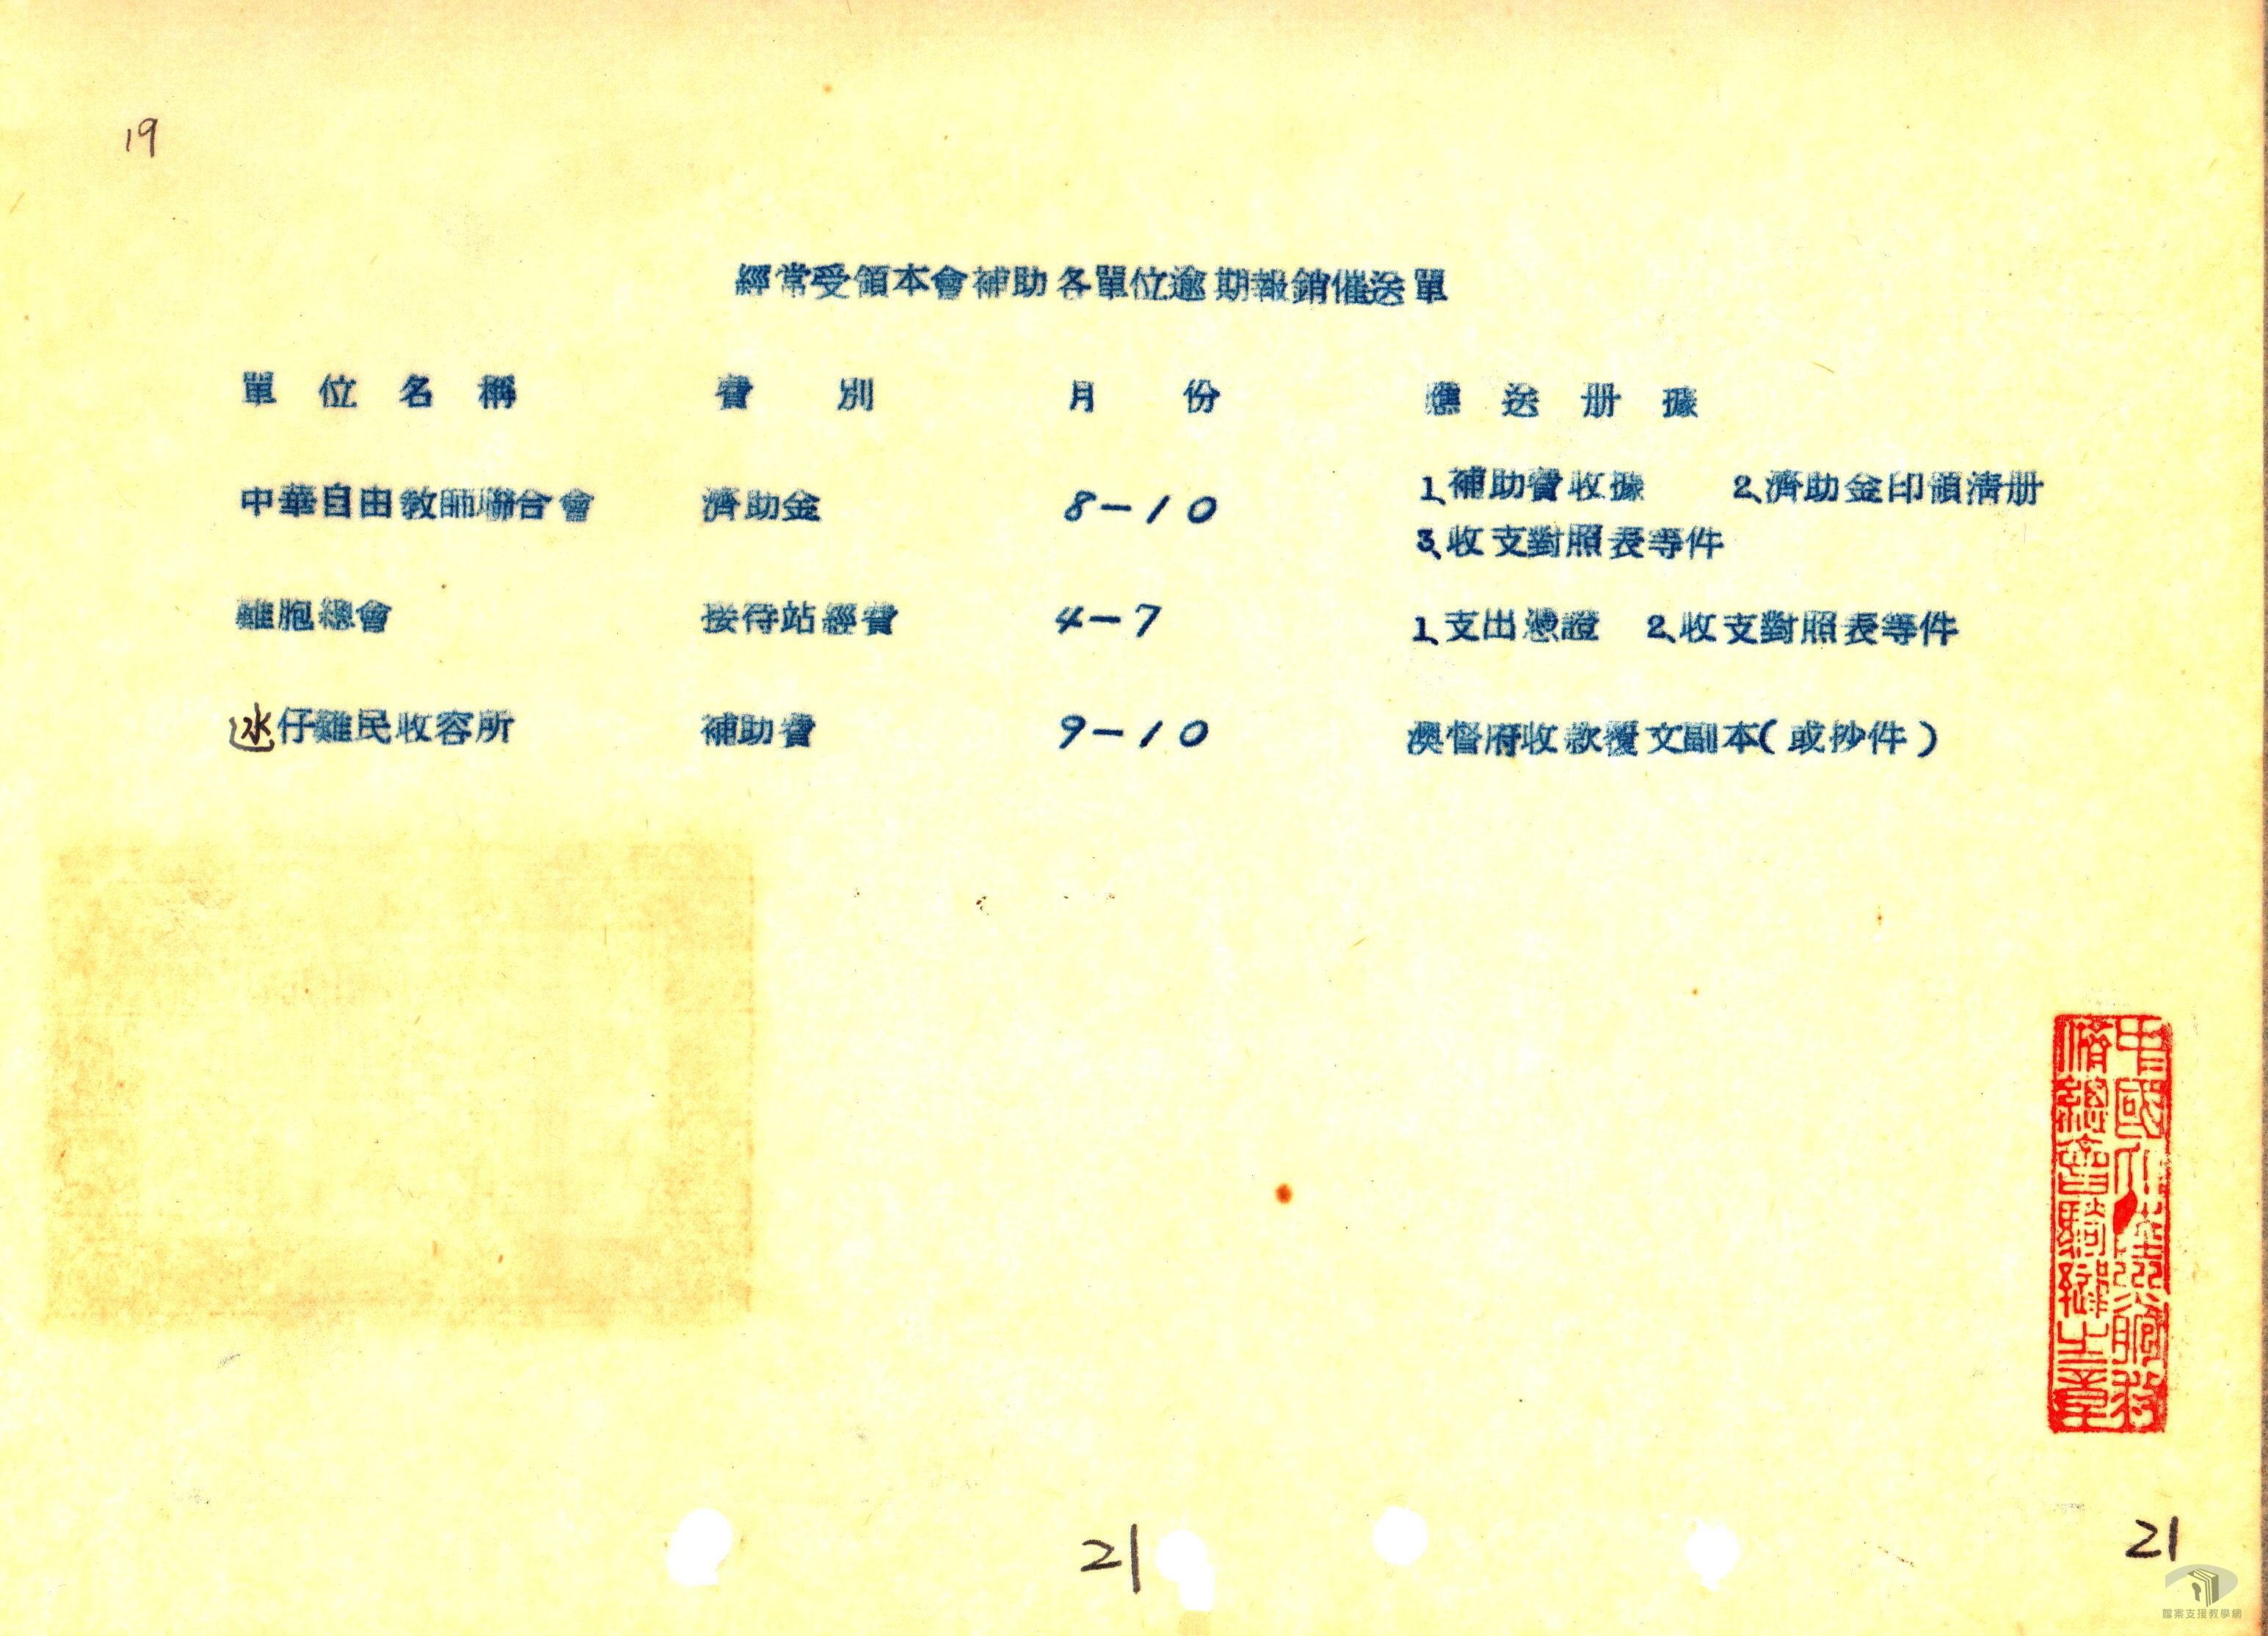 19
經常受領本會補助各單位逾期報銷催送單
單位名稱 費別 月份 應送册據
中華自由教師聯合會 濟助金 8-10 1、補助費收據 2、濟助金印領清册
3、收支對照表等件
難胞總會 接待站經費 4-7 1、支出憑證 2、收支對照表等件
氹仔難民收容所 補助費 9-10 澳督府收款覆文副本(或抄件)
中國大陸災胞救
濟總會騎縫之章
21
21
檔案支援教學網